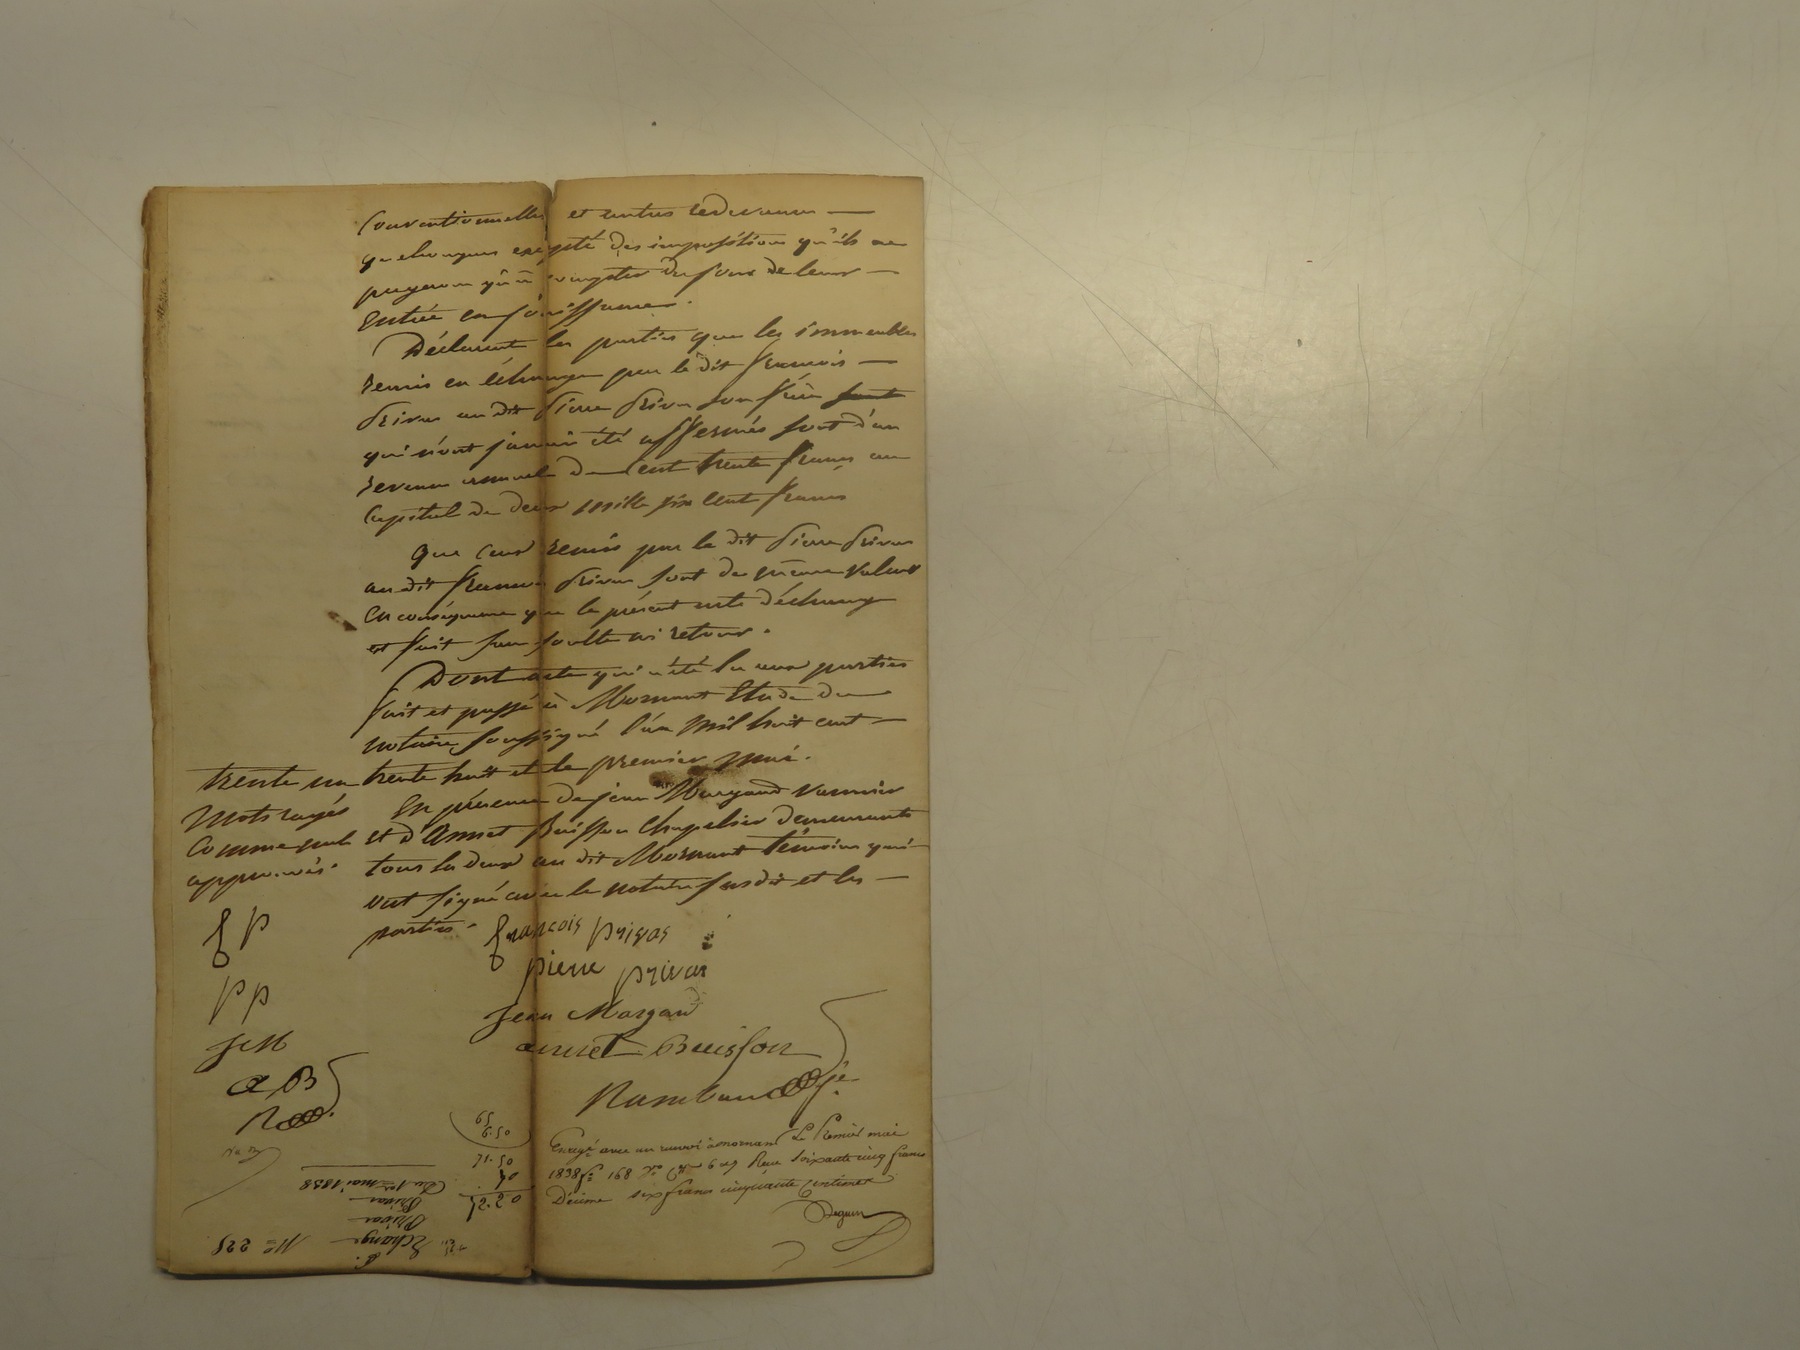 Conventionnelles et autres redevances —
quelconques excepté des impositions qu'ils ne
payeron qu'à compter du jour de leur —
Entrée en jouissance.
Déclarent les parties que les immeubles
remis en échange par le dit francois —
Privas au dit Pierre Privas son frère sont
qui n'ont jamais été affermés sont d'un
revenu annuel de cent trente francs au
Capital de deux mille six cent francs
Que ceux remis par le dit Pierre Privas
au dit francois Privas sont de même valeur
En conséquence que le présent acte déchange
est fait sans soulte ni retour.
Dont acte qui a été lu aux parties
fait et passé à Mornant Etude du
notaire soussigné l'an mil huit cent —
trente huit et le premier mai.
En présence de jean Margand vannier
et d'Annet Buisson Chapelier demeurants
tous les deux au dit Mornant témoins qui
ont signé avec le notaire susdit et les —
parties.
trente un
Mots rayés
Comme nuls
approuvés.
fp
pp
JeM
aB
françois privas
pierre privas
Jean Margand
annet Buisson
Enregé avec un renvoi à mornant Le Premier mai
1838 fo 168 Reçu soixante cinq francs
Décime six francs cinquante Centimes
65
6.50
71.50
No 225
Echange
Privas
Privas
Du 1er mai 1838